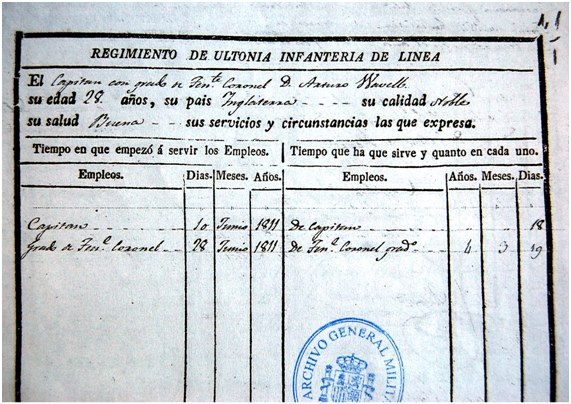 1.
REGIMIENTO DE ULTONIA INFANTERIA DE LINEA
El Capitan con grado de Tente. Coronel D. Arturo Wavell
su edad 28 años, su pais Inglaterra su calidad Noble
su salud Buena sus servicios y circunstancias las que expresa.
Tiempo en que empezó á servir los Empleos. Tiempo que ha que sirve y quanto en cada uno.
Empleos. Dias. Meses. Años. Empleos. Años. Meses. Dias.
Capitan 10 Junio 1811 De Capitan " " 18
Grado de Tene. Coronel 28 Junio 1811 De Tene. Coronel grado. 4 3 19
ARCHIVO GENERAL MILITA